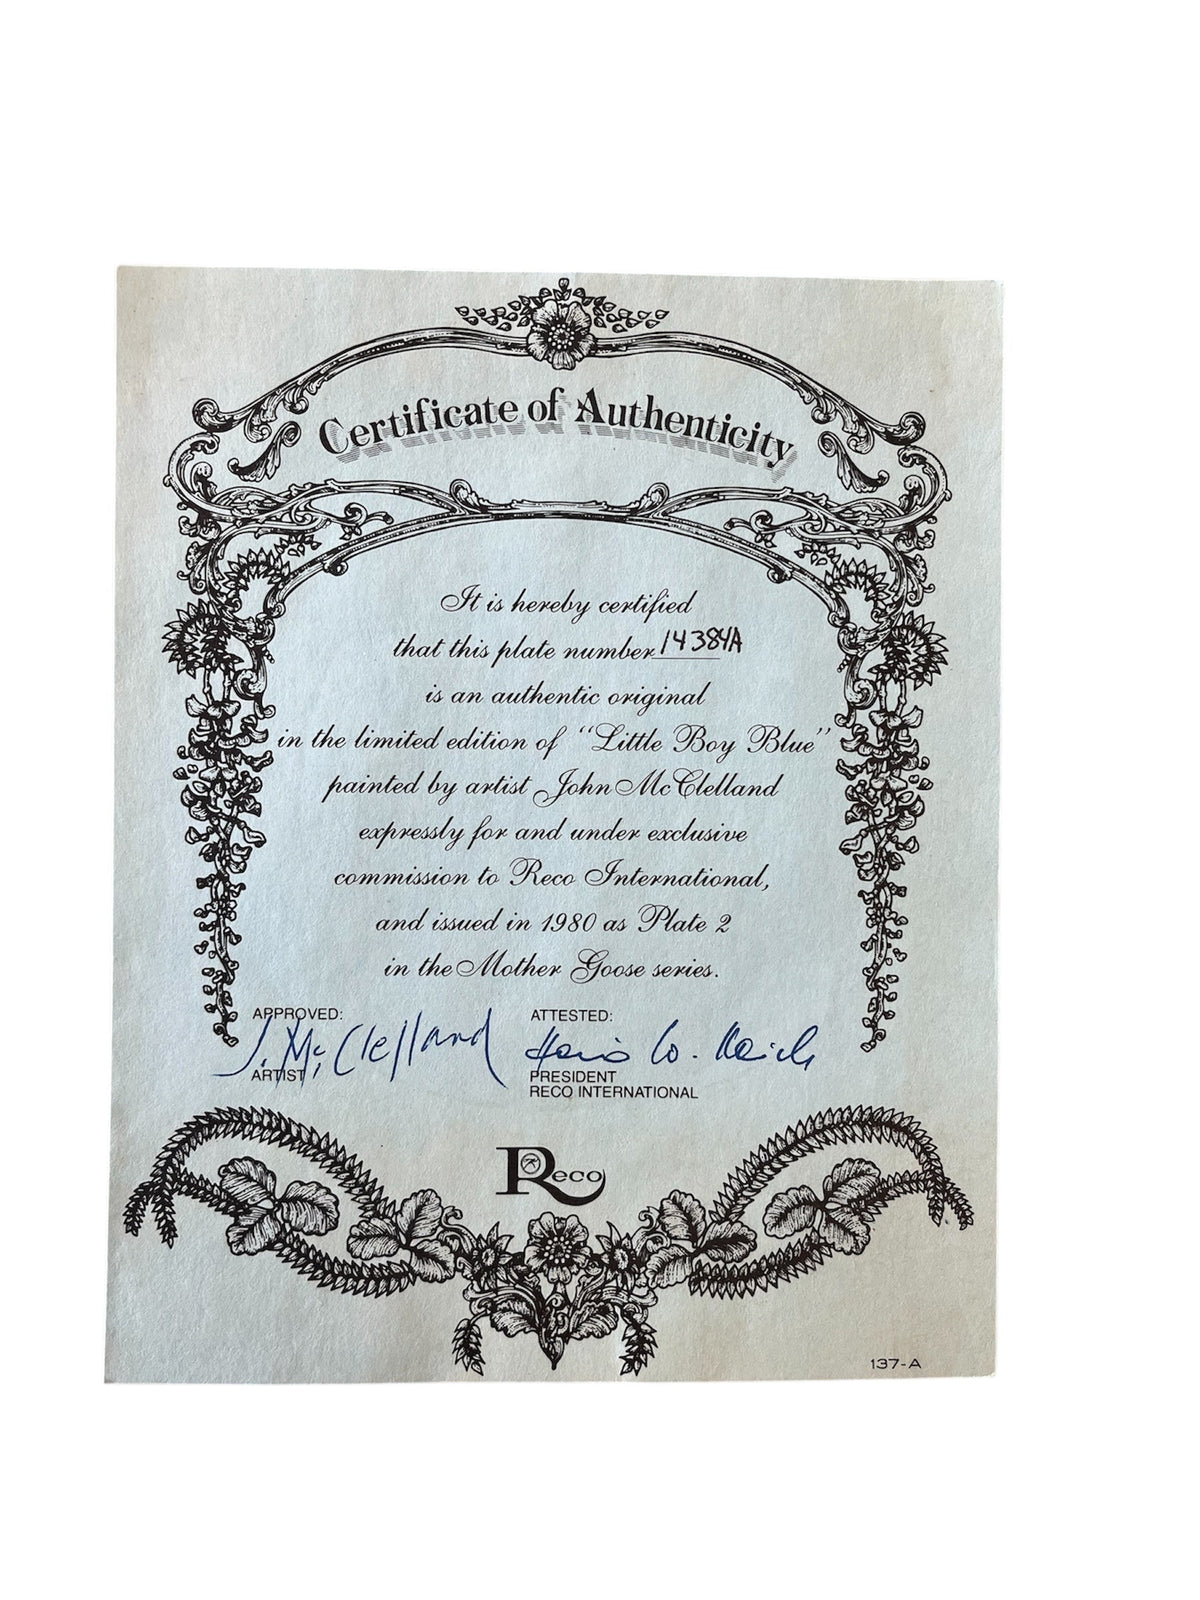 Certificate of Authenticity
It is hereby certified
that this plate number 14384A
is an authentic original
in the limited edition of “Little Boy Blue”
painted by artist John McClelland
expressly for and under exclusive
commission to Reco International,
and issued in 1980 as Plate 2
in the Mother Goose series.
APPROVED:
J. McClelland
ARTIST
ATTESTED:
W. Reich
PRESIDENT
RECO INTERNATIONAL
Reco
137-A